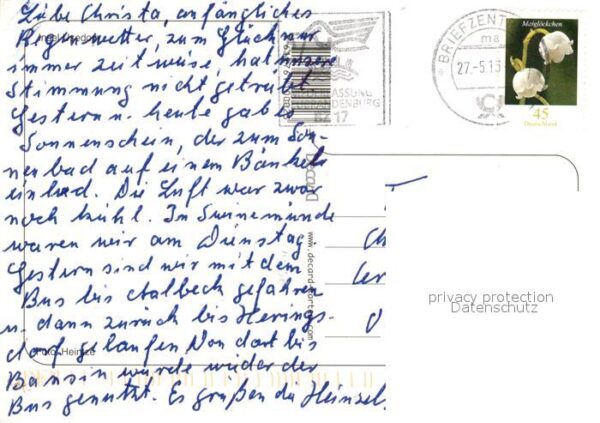 Liebe Christa, anfängliches
Regenwetter, zum Glück nur
immer zeitweise, hat unsere
Stimmung nicht getrübt.
Gestern u. heute gab es
Sonnenschein, der zum Son-
nenbad auf einem Bänkele
einlud. Die Luft war zwar
noch kühl. In Swinemünde
waren wir am Dienstag
Gestern sind wir mit dem
Bus bis Ahlbeck gefahren
u. dann zurück bis Herings-
dorf gelaufen Von dort bis
Bansin wurde wieder der
Bus genutzt. Es grüßen da Heinzel
Foto: Heinze
www.decard
BRIEFZENT
ma
27.-5.13
17
Maiglöckchen
45
Deutschland
privacy protection
Datenschutz